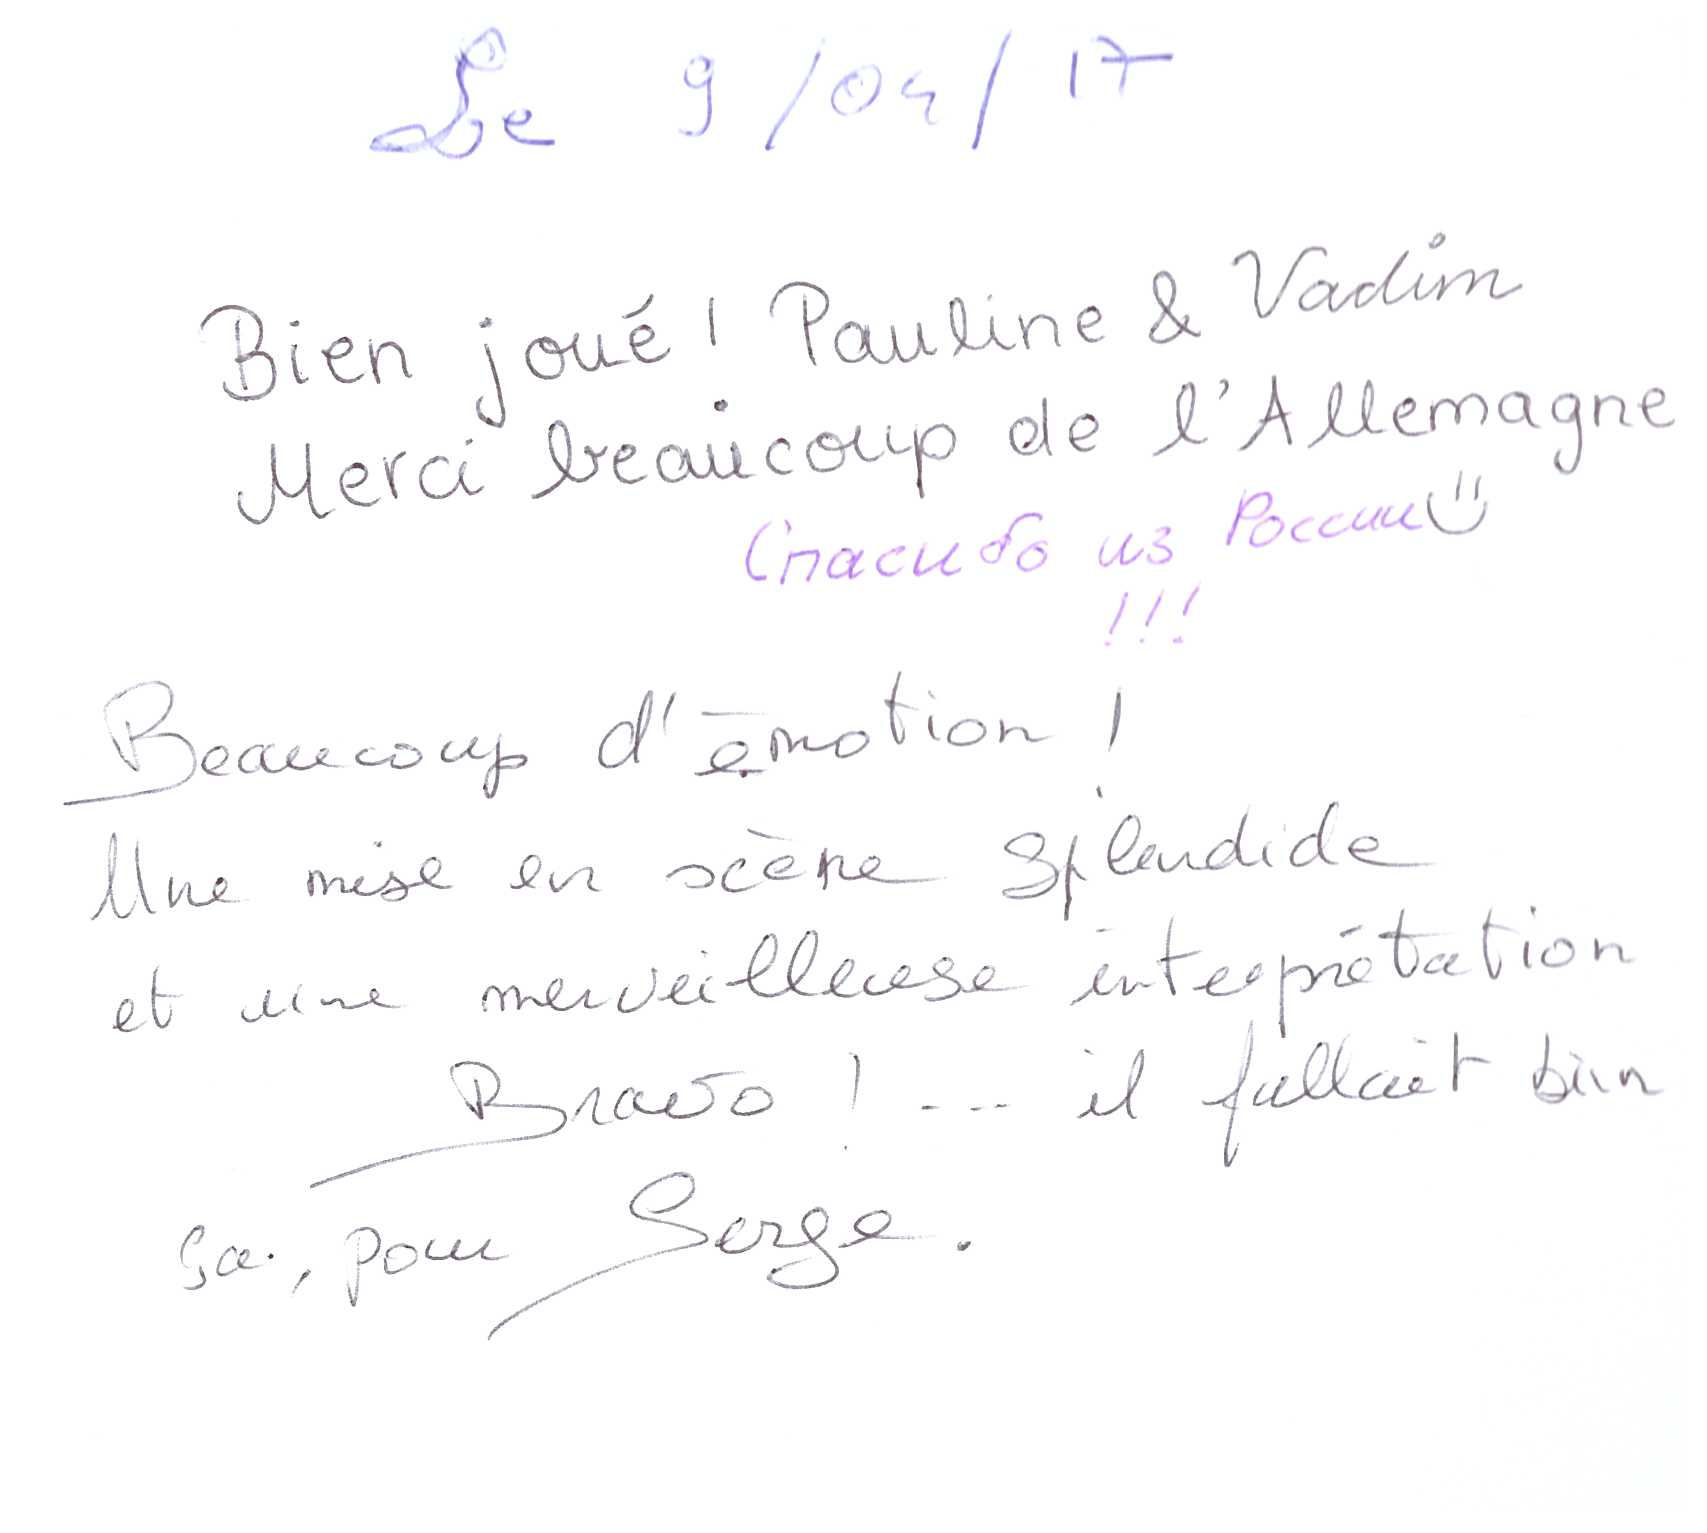 Le 9/04/17
Bien joué! Pauline & Vadim
Merci beaucoup de l'Allemagne
Спасибо из России
!!!
Beaucoup d'émotion!
Une mise en scène splendide
et une merveilleuse interprétation
Bravo! ... il fallait bien
ça, pour Serge.